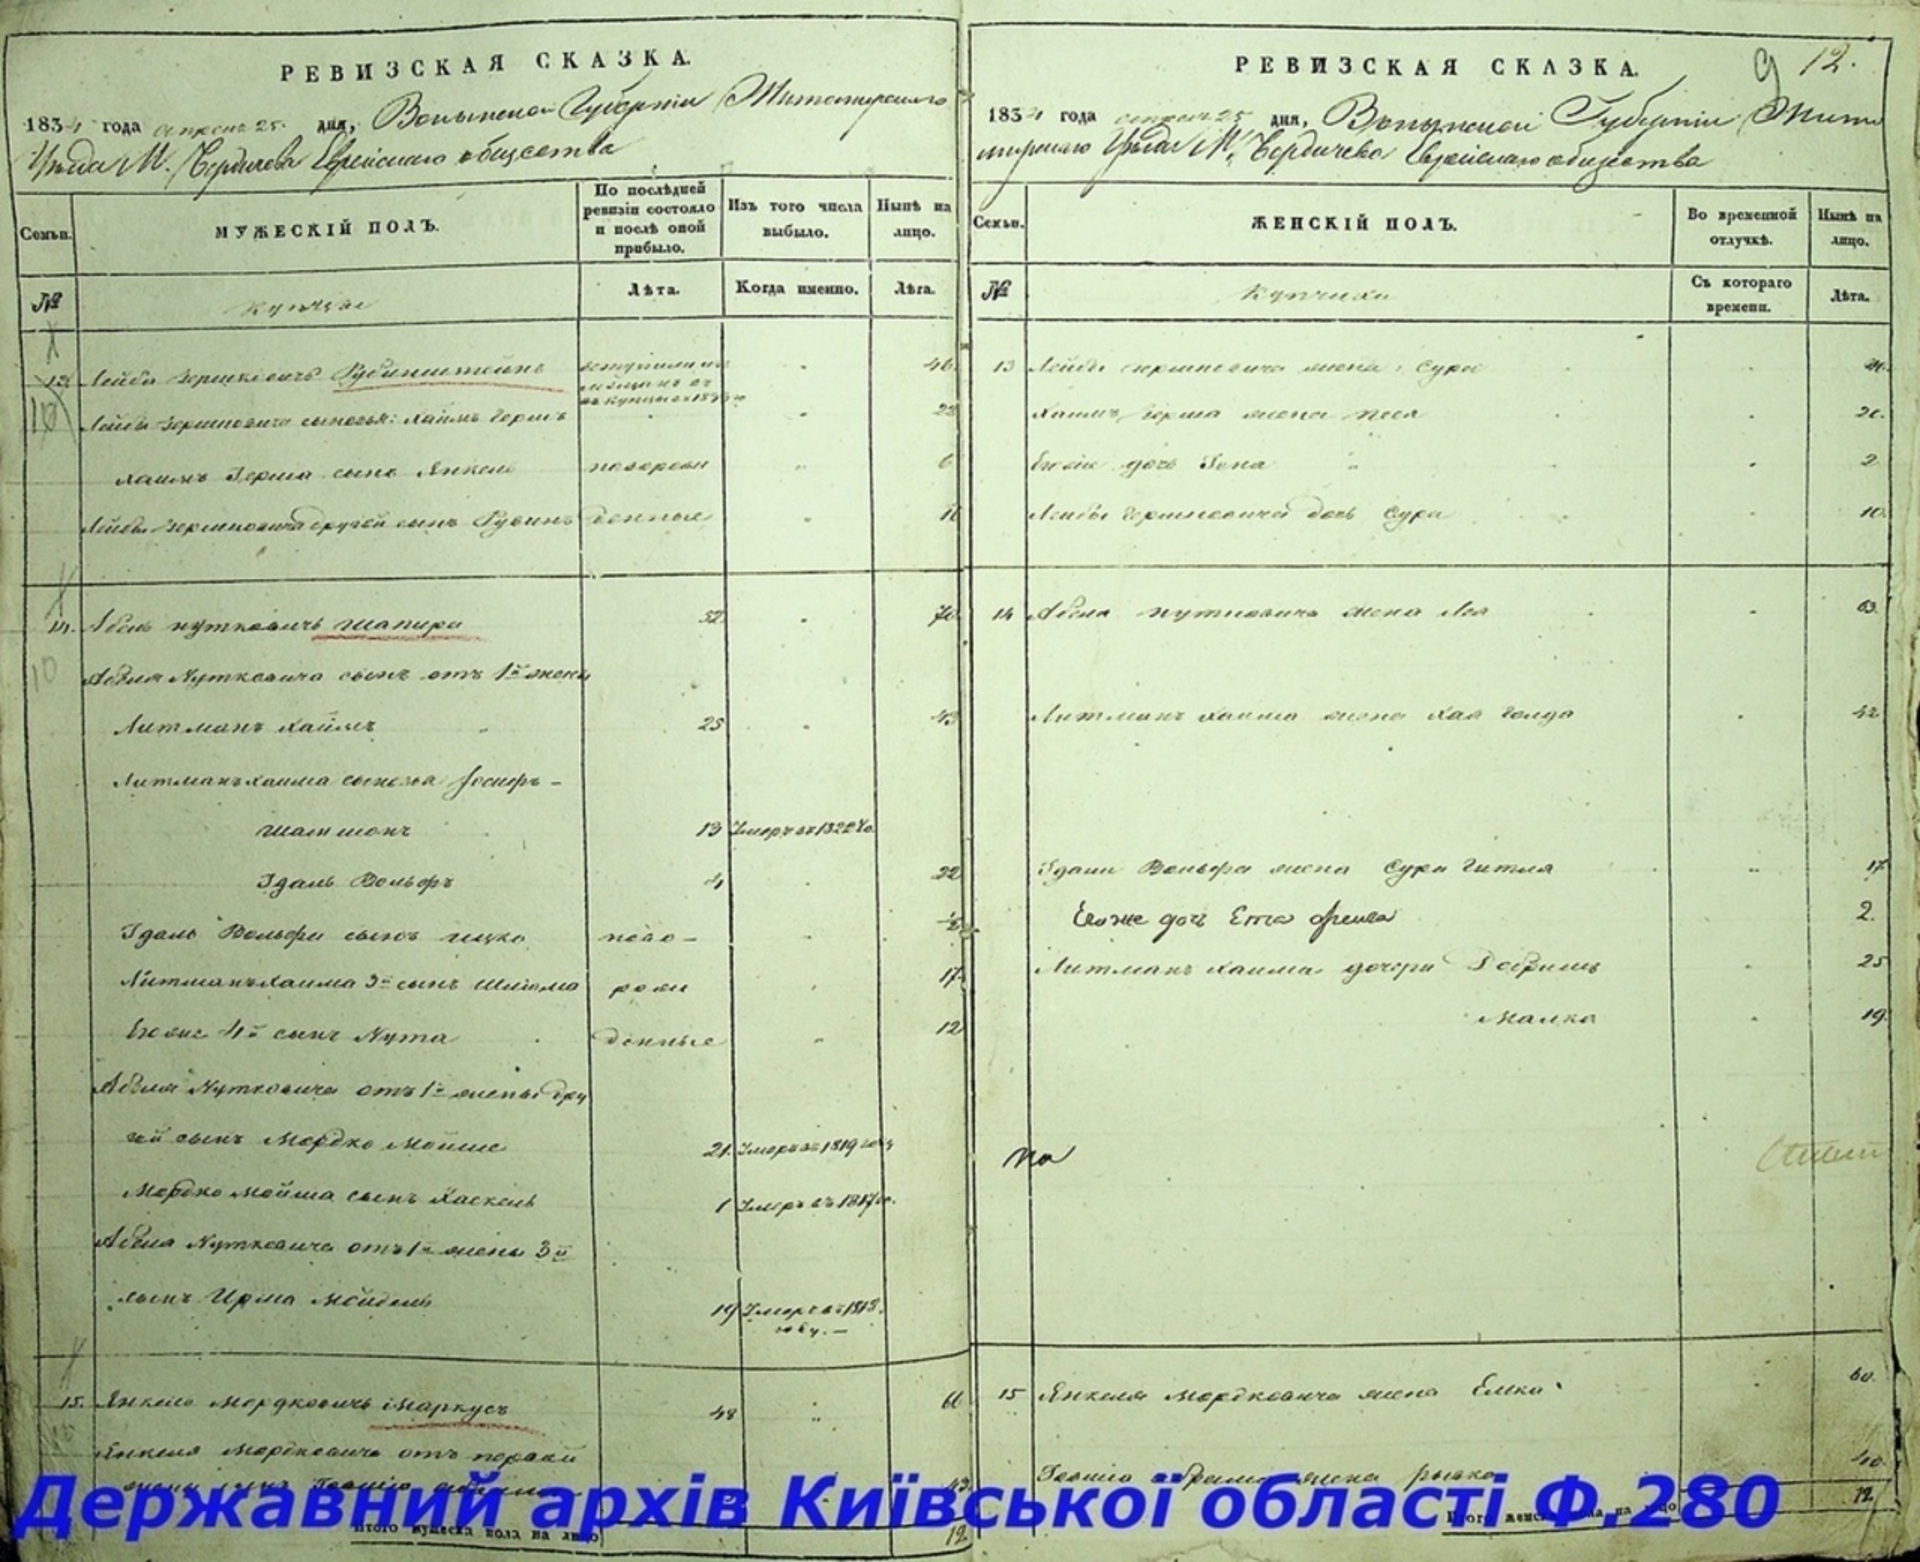 РЕВИЗСКАЯ СКАЗКА.
1834 года апреля 25. дня, Волынской Губернiи Житомирскаго
Уѣзда М. Бердичева Еврейскаго общества
Семьи.
МУЖЕСКІЙ ПОЛЪ.
По послѣдней ревизіи состояло и послѣ оной прибыло.
Изъ того числа выбыло.
Нынѣ на лицо.
№
Купцы
Лѣта.
Когда именно.
Лѣта.
13 Лейба Гершковичъ Рубинштейнъ 46
Лейбы Гершковича сыновья: Хаимъ Гершъ 22
Хаимъ Герша сынъ Янкель новорож 6
Лейбы Гершковича другой сынъ Рувинъ денные 11
14. Абель Нутковичъ Шапира 52 70
Абеля Нутковича сынъ отъ 1й жены
Литманъ Хаимъ 25 43
Литманъ Хаима сыновья Іосифъ –
Шамшонъ 13 Умеръ въ 1822 го.
Идаль Вольфъ 4 22
Идаль Вольфа сынъ Ицко ново –
Литманъ Хаима 3й сынъ Шлиома рож 17
Егоже 4й сынъ Нута денные 12
Абеля Нутковича отъ 1й жены дру
гой сынъ Мордко Мойше 21. Умеръ въ 1819 году
Мордко Мойша сынъ Хаскель 1 Умеръ въ 1817 го.
Абеля Нутковича отъ 1й жены 3й
сынъ Мойдель 19 Умеръ въ 1818.
году. –
15. Янкель Мордковичъ Маркусъ 48 66
Янкеля Мордковича отъ первой
жены сынъ 43
Итого мужеска пола на лицо 12
РЕВИЗСКАЯ СКАЗКА.
9 12.
1834 года апреля 25 дня, Волынской Губернiи Жито
мирскаго Уѣзда М. Бердичева Еврейскаго общества
Семьи.
ЖЕНСКІЙ ПОЛЪ.
Во временной отлучкѣ.
Нынѣ на лицо.
№
Купчихи
Съ котораго времени.
Лѣта.
13 Лейбы Гершковича жена Сура
Хаимъ Герша жена Песя 20.
Егоже дочь 2
Лейбы Гершковича дочь Сура 10.
14 Абеля Нутковича жена Лея 63.
Литманъ Хаима жена Хая Голда 42
Идаль Вольфа жена Сура Гитля 17
Егоже дочь Ета Фрейга 2.
Литманъ Хаима дочери Добришъ 25
Малка 19.
15 Янкеля Мордковича жена Елка 60.
жена Рывка 40.
Итого женска пола на лицо 12
Державний архів Київської області Ф.280